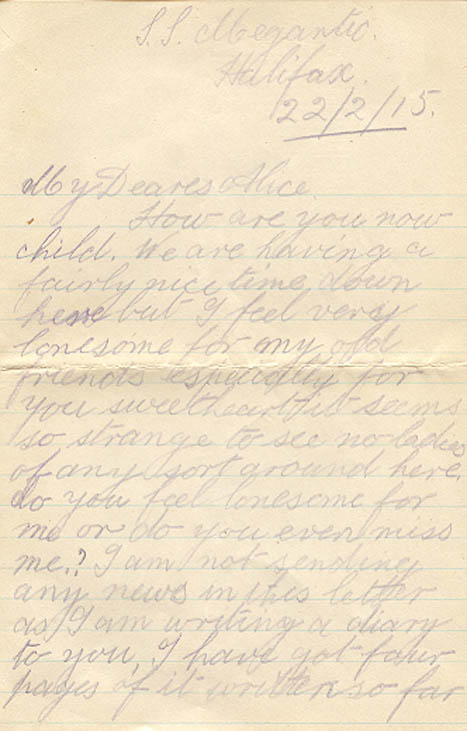 S.S. Megantic.
Halifax.
22/2/15.
My Deares Alice
How are you now
child. We are having a
fairly nice time down
here but I feel very
lonesome for my old
friends especially for
you sweetheart it seems
so strange to see no ladies
of any sort around here.
do you feel lonesome for
me or do you even miss
me.? I am not sending
any news in this letter
as I am writing a diary
to you, I have got four
pages of it written so far